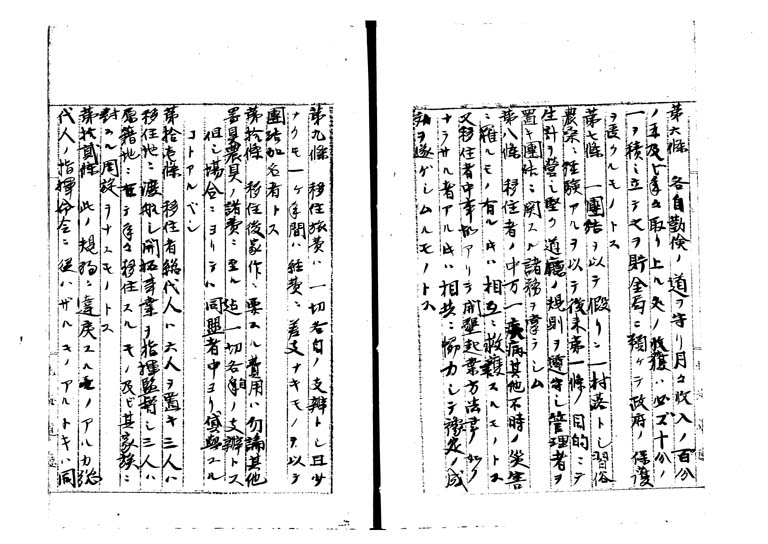 第六條 各自勤倹ノ道ヲ守リ月々收入ノ百分
ノ五及ビ年々取リ上ル處ノ收獲ハ必ズ十分ノ
一ヲ積ミ立テ之ヲ貯金局ニ預ケテ政府ノ保護
ヲ受クルモノトス
第七條 一團結ヲ以テ假リニ一村落トシ習俗
農桑ノ經験アルヲ以テ後来第一條ノ目的ニテ
生計ヲ營ミ堅ク道廳ノ規則ヲ遵守シ管理者ヲ
置キ團結ニ関スル諸務ヲ掌ラシム
第八條 移住者ノ中万一疾病其他不時ノ災害
ニ罹ルモノ有ル時ハ相互ニ救護スルモノトス
又移住者中事故アリテ開墾起業方法書ノ如ク
ナラサル者アル時ハ相共ニ協力シテ豫定ノ成
績ヲ遂ゲシムルモノトス
第九條 移住旅費ハ一切各自ノ支辨トシ且少
ナクモ一ケ年間ハ経費ニ差支ナキモノヲ以テ
團結加名者トス
第拾條 移住後家作ニ要スル費用ハ勿論其他
器具農具ノ諸費ニ至ル迠一切各自ノ支辨トス
但シ場合ニヨリテハ同盟者中ヨリ貸與スル
コトアルベシ
第拾壱條 移住者総代人ハ六人ヲ置キ三人ハ
移住地ニ渡航シ開拓事業ヲ指揮監督シ三人ハ
原籍地ニ在テ年々移住スルモノ及ビ其家族ニ
對スル周旋ヲナスモノトス
第拾貳條 此ノ規約ニ違戻スルモノアルカ総
代人ノ指揮命令ニ従ハザルモノアルトキハ同